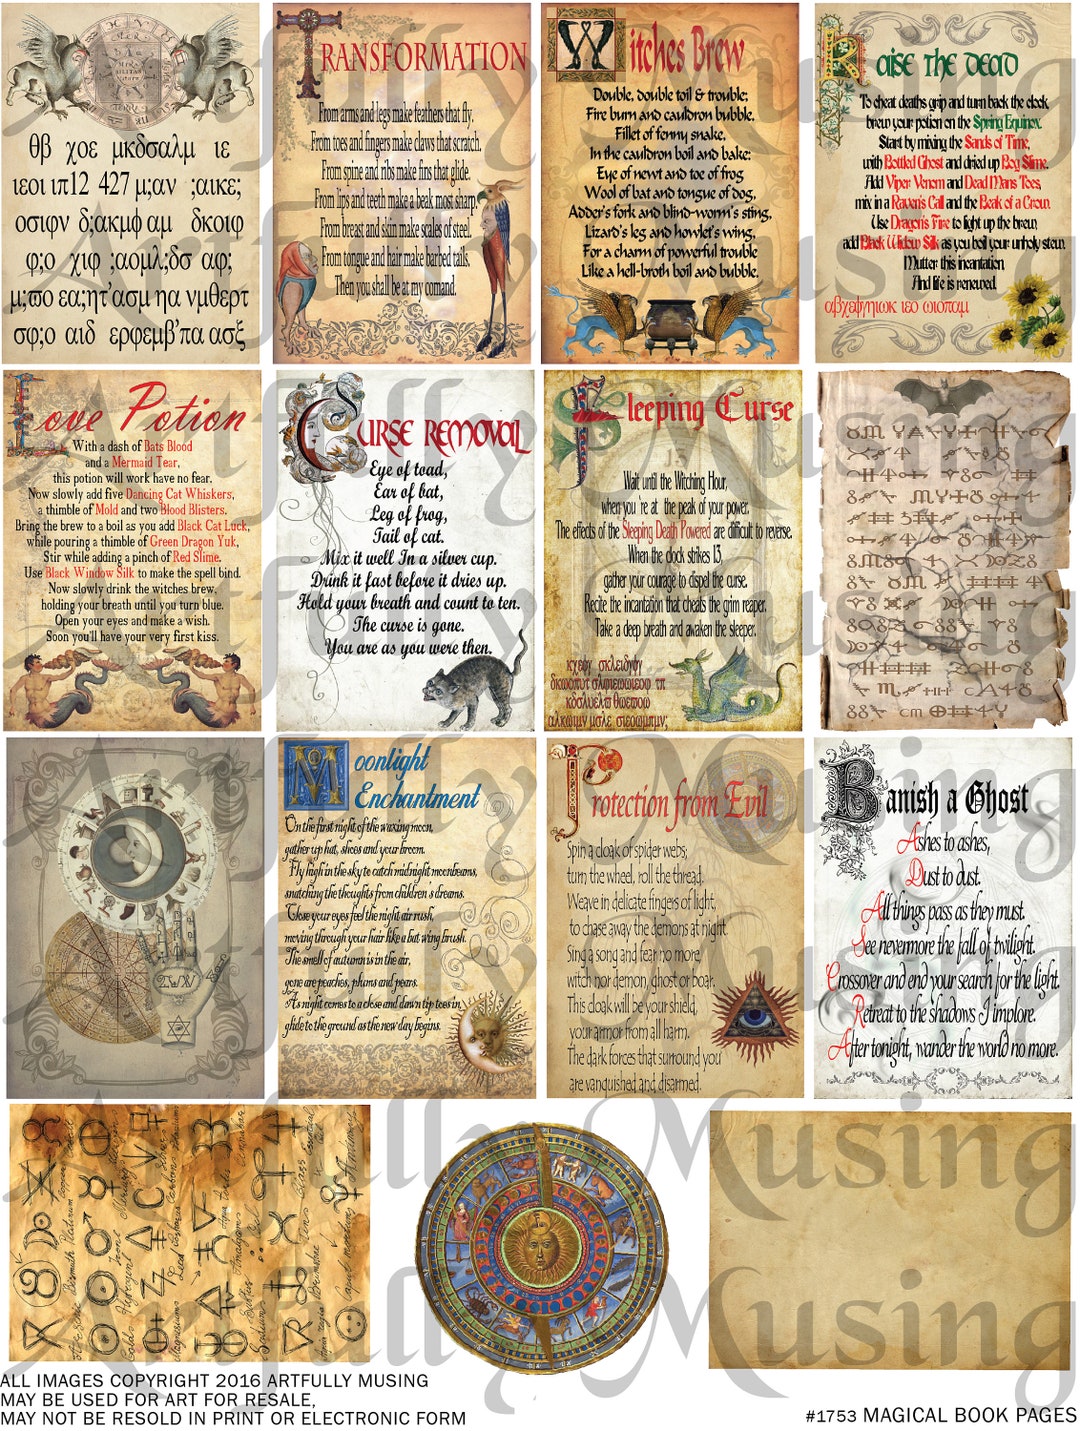 θβ χοε μκδσαλμ ιε
ιεοι ιπ12 427 μ;αν ;αικε;
οσιφν δ;ακμφ αμ δκοιφ
φ;ο χιφ ;αομλ;δσ αφ;
μ;πο εα;ητ'ασμ ηα νμθερτ
σφ;ο αιδ ερφεμβ'πα ασξ
TRANSFORMATION
From arms and legs make feathers that fly,
From toes and fingers make claws that scratch,
From spine and ribs make fins that glide.
From lips and teeth make a beak most sharp,
From breast and skin make scales of steel.
From tongue and hair make barbed tails.
Then you shall be at my comand.
Witches Brew
Double, double toil & trouble;
Fire burn and cauldron bubble.
Fillet of fenny snake,
In the cauldron boil and bake:
Eye of newt and toe of frog
Wool of bat and tongue of dog,
Adder's fork and blind-worm's sting,
Lizard's leg and howlet's wing,
For a charm of powerful trouble
Like a hell-broth boil and bubble.
Raise the Dead
To cheat deaths grip and turn back the clock,
brew your potion on the Spring Equinox.
Start by mixing the Sands of Time,
with Bottled Ghost and dried up Bog Slime.
Add Viper Venom and Dead Mans Toes,
mix in a Raven's Call and the Beak of a Crow.
Use Dragon's Fire to light up the brew,
add Black Widow Silk as you boil your unholy stew.
Mutter this incantation,
And life is renewed.
αβχεψγηιωκ ιεο ωιοπαμ
Love Potion
With a dash of Bats Blood
and a Mermaid Tear,
this potion will work have no fear.
Now slowly add five Dancing Cat Whiskers,
a thimble of Mold and two Blood Blisters.
Bring the brew to a boil as you add Black Cat Luck,
while pouring a thimble of Green Dragon Yuk,
Stir while adding a pinch of Red Slime.
Use Black Window Silk to make the spell bind.
Now slowly drink the witches brew,
holding your breath until you turn blue.
Open your eyes and make a wish.
Soon you'll have your very first kiss.
Curse Removal
Eye of toad,
Ear of bat,
Leg of frog,
Tail of cat.
Mix it well In a silver cup.
Drink it fast before it dries up.
Hold your breath and count to ten.
The curse is gone.
You are as you were then.
Sleeping Curse
13
Wait until the Witching Hour,
when you 're at the peak of your power.
The effects of the Sleeping Death Powered are difficult to reverse.
When the clock strikes 13,
gather your courage to dispel the curse.
Recite the incantation that cheats the grim reaper.
Take a deep breath and awaken the sleeper.
κχεογ σκλειδγογ
Moonlight
Enchantment
On the first night of the waxing moon,
gather up hat, shoes and your broom.
Fly high in the sky to catch midnight moonbeams,
snatching the thoughts from children's dreams.
Close your eyes feel the night air rush,
moving through your hair like a bat wing brush.
The smell of autumn is in the air,
gone are peaches, plums and pears.
As night comes to a close and dawn tip toes in,
glide to the ground as the new day begins.
Protection from Evil
Spin a cloak of spider webs;
turn the wheel, roll the thread.
Weave in delicate fingers of light,
to chase away the demons at night.
Sing a song and fear no more,
witch nor demon, ghost or boar.
This cloak will be your shield,
your armor from all harm.
The dark forces that surround you
are vanquished and disarmed.
Banish a Ghost
Ashes to ashes,
Dust to dust.
All things pass as they must.
See nevermore the fall of twilight.
Crossover and end your search for the light.
Retreat to the shadows I implore.
After tonight, wander the world no more.
Artfully Musing
Artfully Musing
Artfully Musing
Artfully Musing
Artfully Musing
Artfully Musing
Artfully Musing
ALL IMAGES COPYRIGHT 2016 ARTFULLY MUSING
MAY BE USED FOR ART FOR RESALE,
MAY NOT BE RESOLD IN PRINT OR ELECTRONIC FORM
#1753 MAGICAL BOOK PAGES